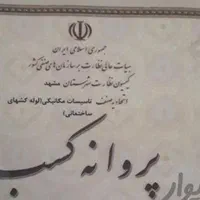 جمهوری اسلامی ایران
هیات عالی نظارت بر سازمان های صنفی کشور
کمیسیون نظارت شهرستان مشهد
اتحادیه صنف تاسیسات مکانیکی(لوله کشهای
ساختمانی)
پروانه کسب